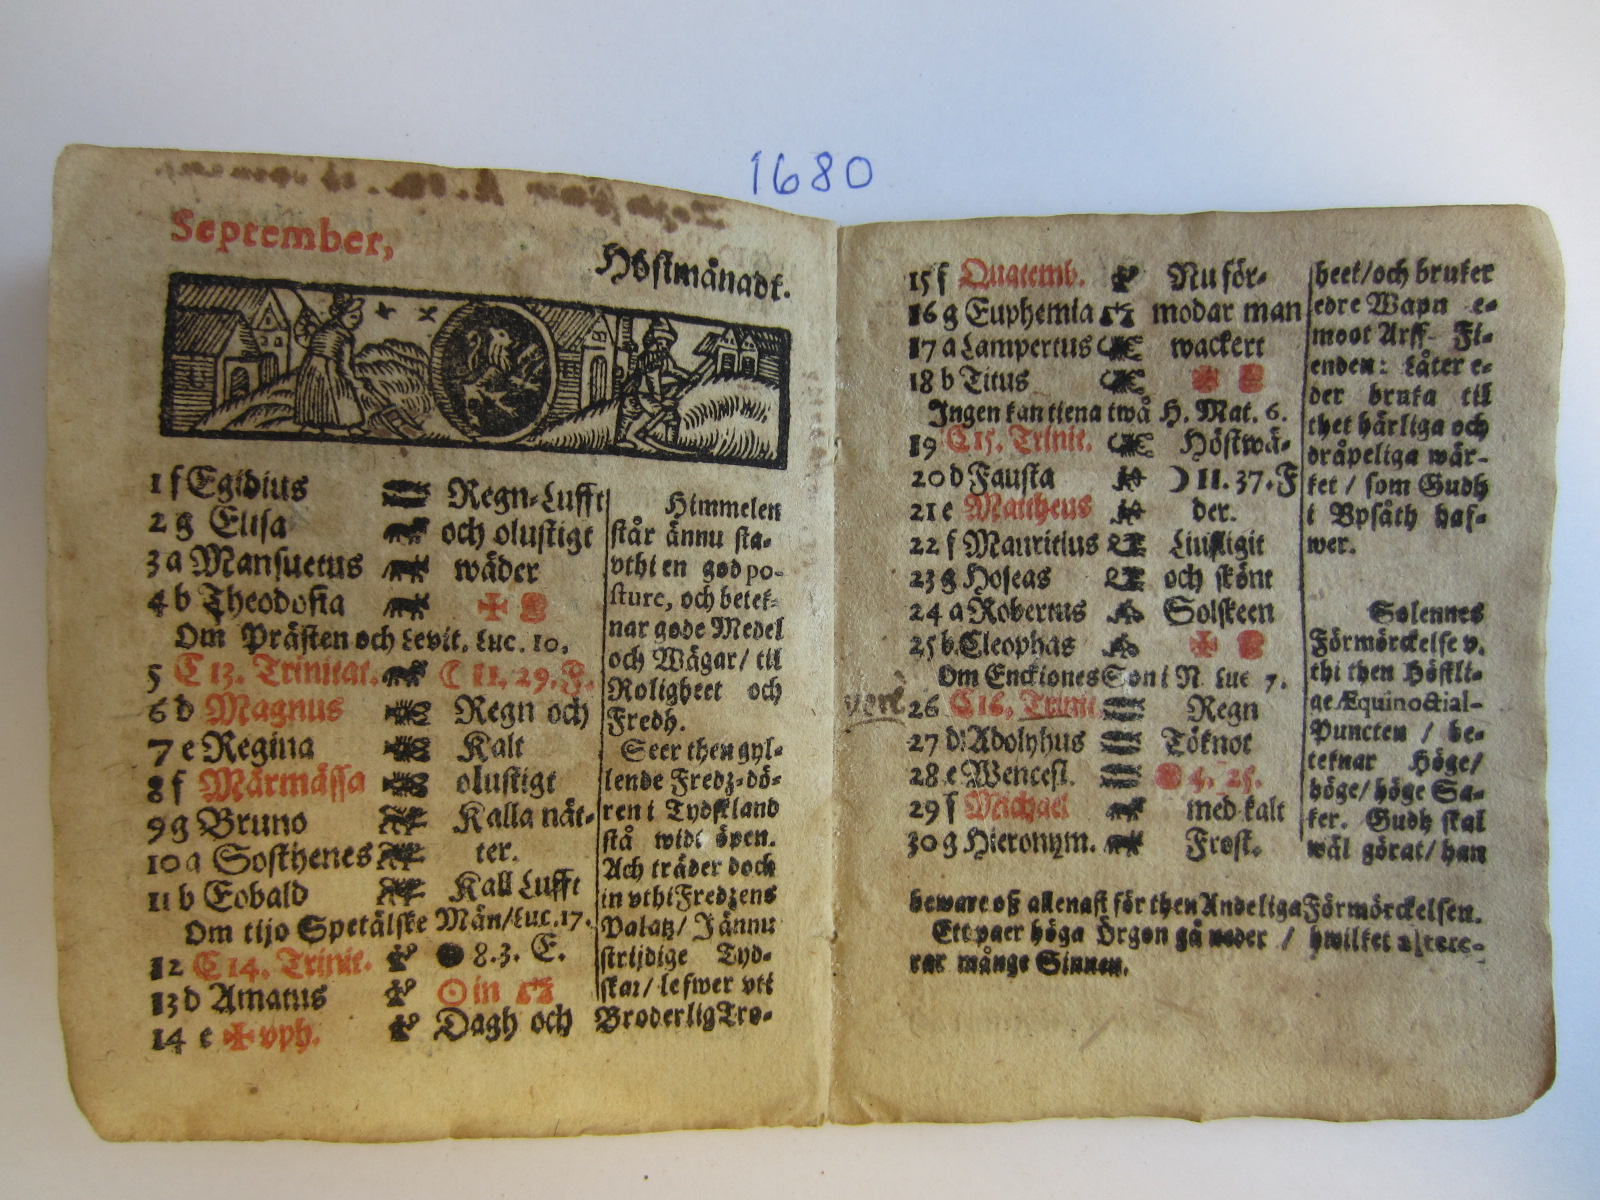 1680
September,
Höstmånadt.
1 f Egidius Regn-Lufft
2 g Elisa och olustigt
3 a Mansuetus wäder
4 b Theodosia
Om Prästen och Levit. Luc. 10.
5 C 13. Trinitat. 11. 29. F.
6 d Magnus Regn och
7 e Regina Kalt
8 f Märmässa olustigt
9 g Bruno Kalla nät-
10 a Sosthenes ter.
11 b Eobald Kall Lufft
Om tijo Spetälske Män/Luc. 17.
12 C 14. Trinit. 8. 3. E.
13 d Amatus ☉ in
14 e ✠ vph. Dagh och
Himmelen
står ännu sta-
vthi en god po-
sture, och betek-
nar gode Medel
och Wägar/ til
Roligheet och
Fredh.
Seer then gyl-
lende Fredz-dö-
ren i Tydskland
stå widt öpen.
Ach träder doch
in vthi Fredzens
Palatz/ J ännu
strijdige Tyd-
skar/ lefwer vti
Broderlig Tro-
15 f Quatemb. Nu för-
16 g Euphemia modar man
17 a Lampertus wackert
18 b Titus
Ingen kan tiena twå H. Mat. 6.
19 C 15. Trinit. Höstwä-
20 d Fausta ☽ 11. 37. F
21 e Mattheus der.
22 f Mauritius Liufligit
23 g Hoseas och skönt
24 a Robertus Solskeen
25 b Cleophas
Om Enckiones Son i N. Luc 7.
26 C 16. Trinit Regn
27 d Adolphus Töknot
28 e Wencesl. 4. 25.
29 f Michael med kalt
30 g Hieronym. Frost.
heet/och bruker
edre Wapn e-
moot Arff- Fi-
enden: Låter e-
der bruka til
thet härliga och
dråpeliga wär-
ket / som Gudh
i Vpsåth haf-
wer.
Solennes
Förmörckelse v.
thi then Höstli-
ge Æquinoctial-
Puncten / be-
teknar Höge/
höge/ höge Sa-
ker. Gudh skal
wäl görat/ han
beware oß allenast för then Andeliga Förmörckelsen.
Ett paer höga Örgon gå neder / hwilket altere-
rar månge Sinnen.